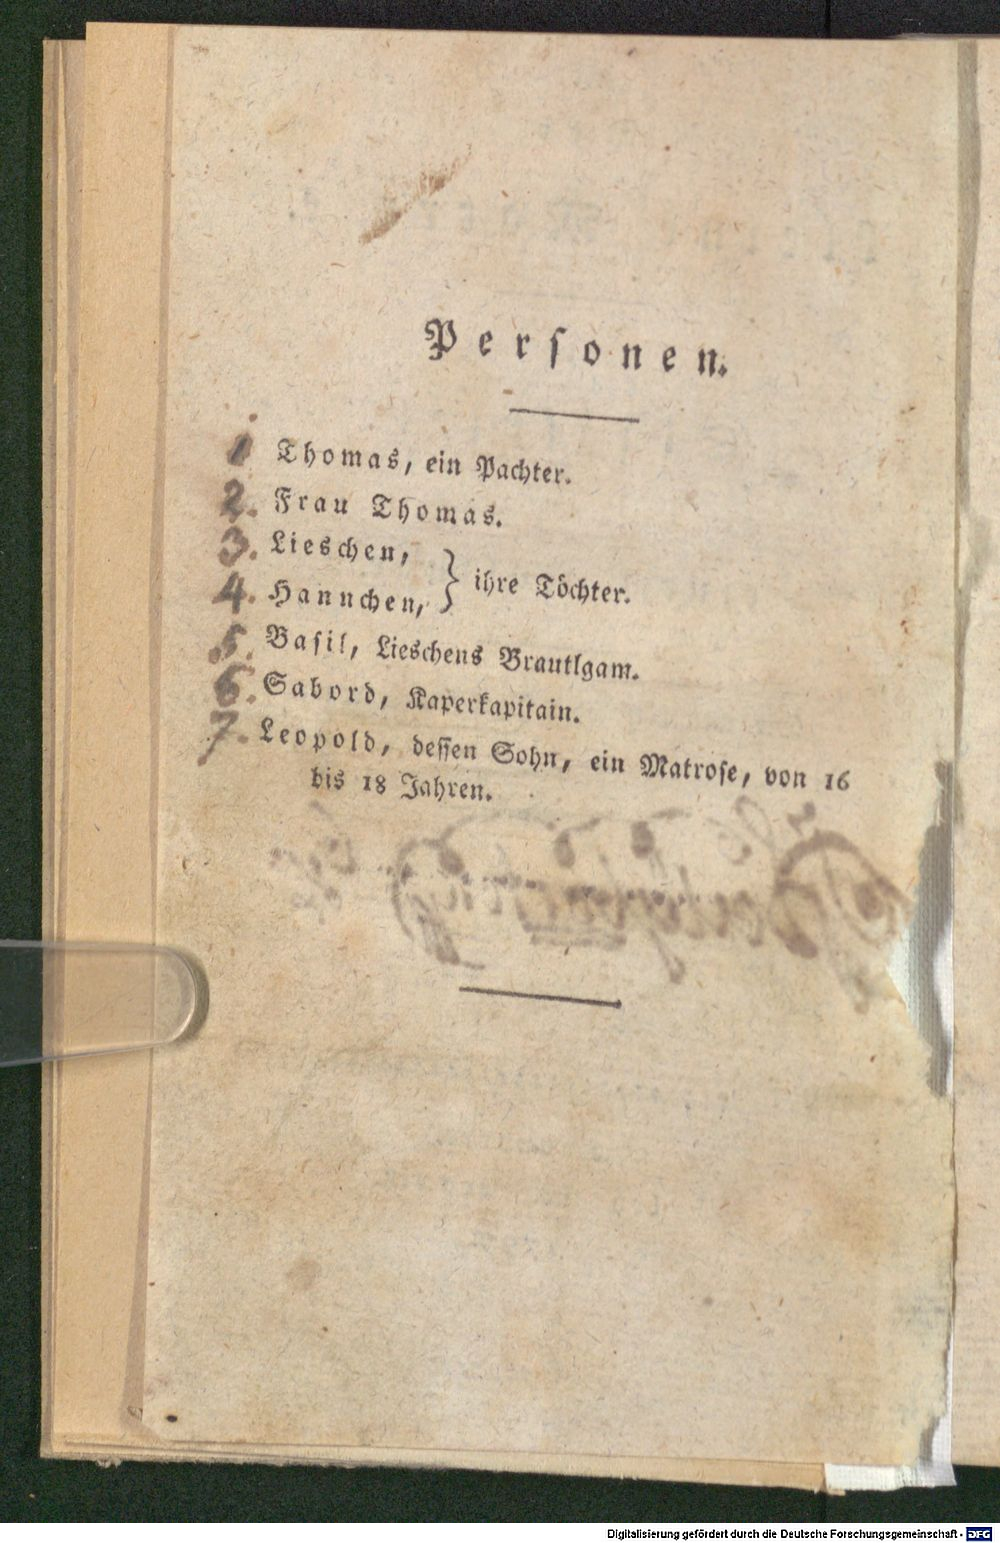 Personen.
1 Thomas, ein Pachter.
2. Frau Thomas.
3. Lieschen,
4. Hannchen, } ihre Töchter.
5. Basil, Lieschens Brautlgam.
6. Sabord, Kaperkapitain.
7. Leopold, dessen Sohn, ein Matrose, von 16
bis 18 Jahren.
Digitalisierung gefördert durch die Deutsche Forschungsgemeinschaft - DFG